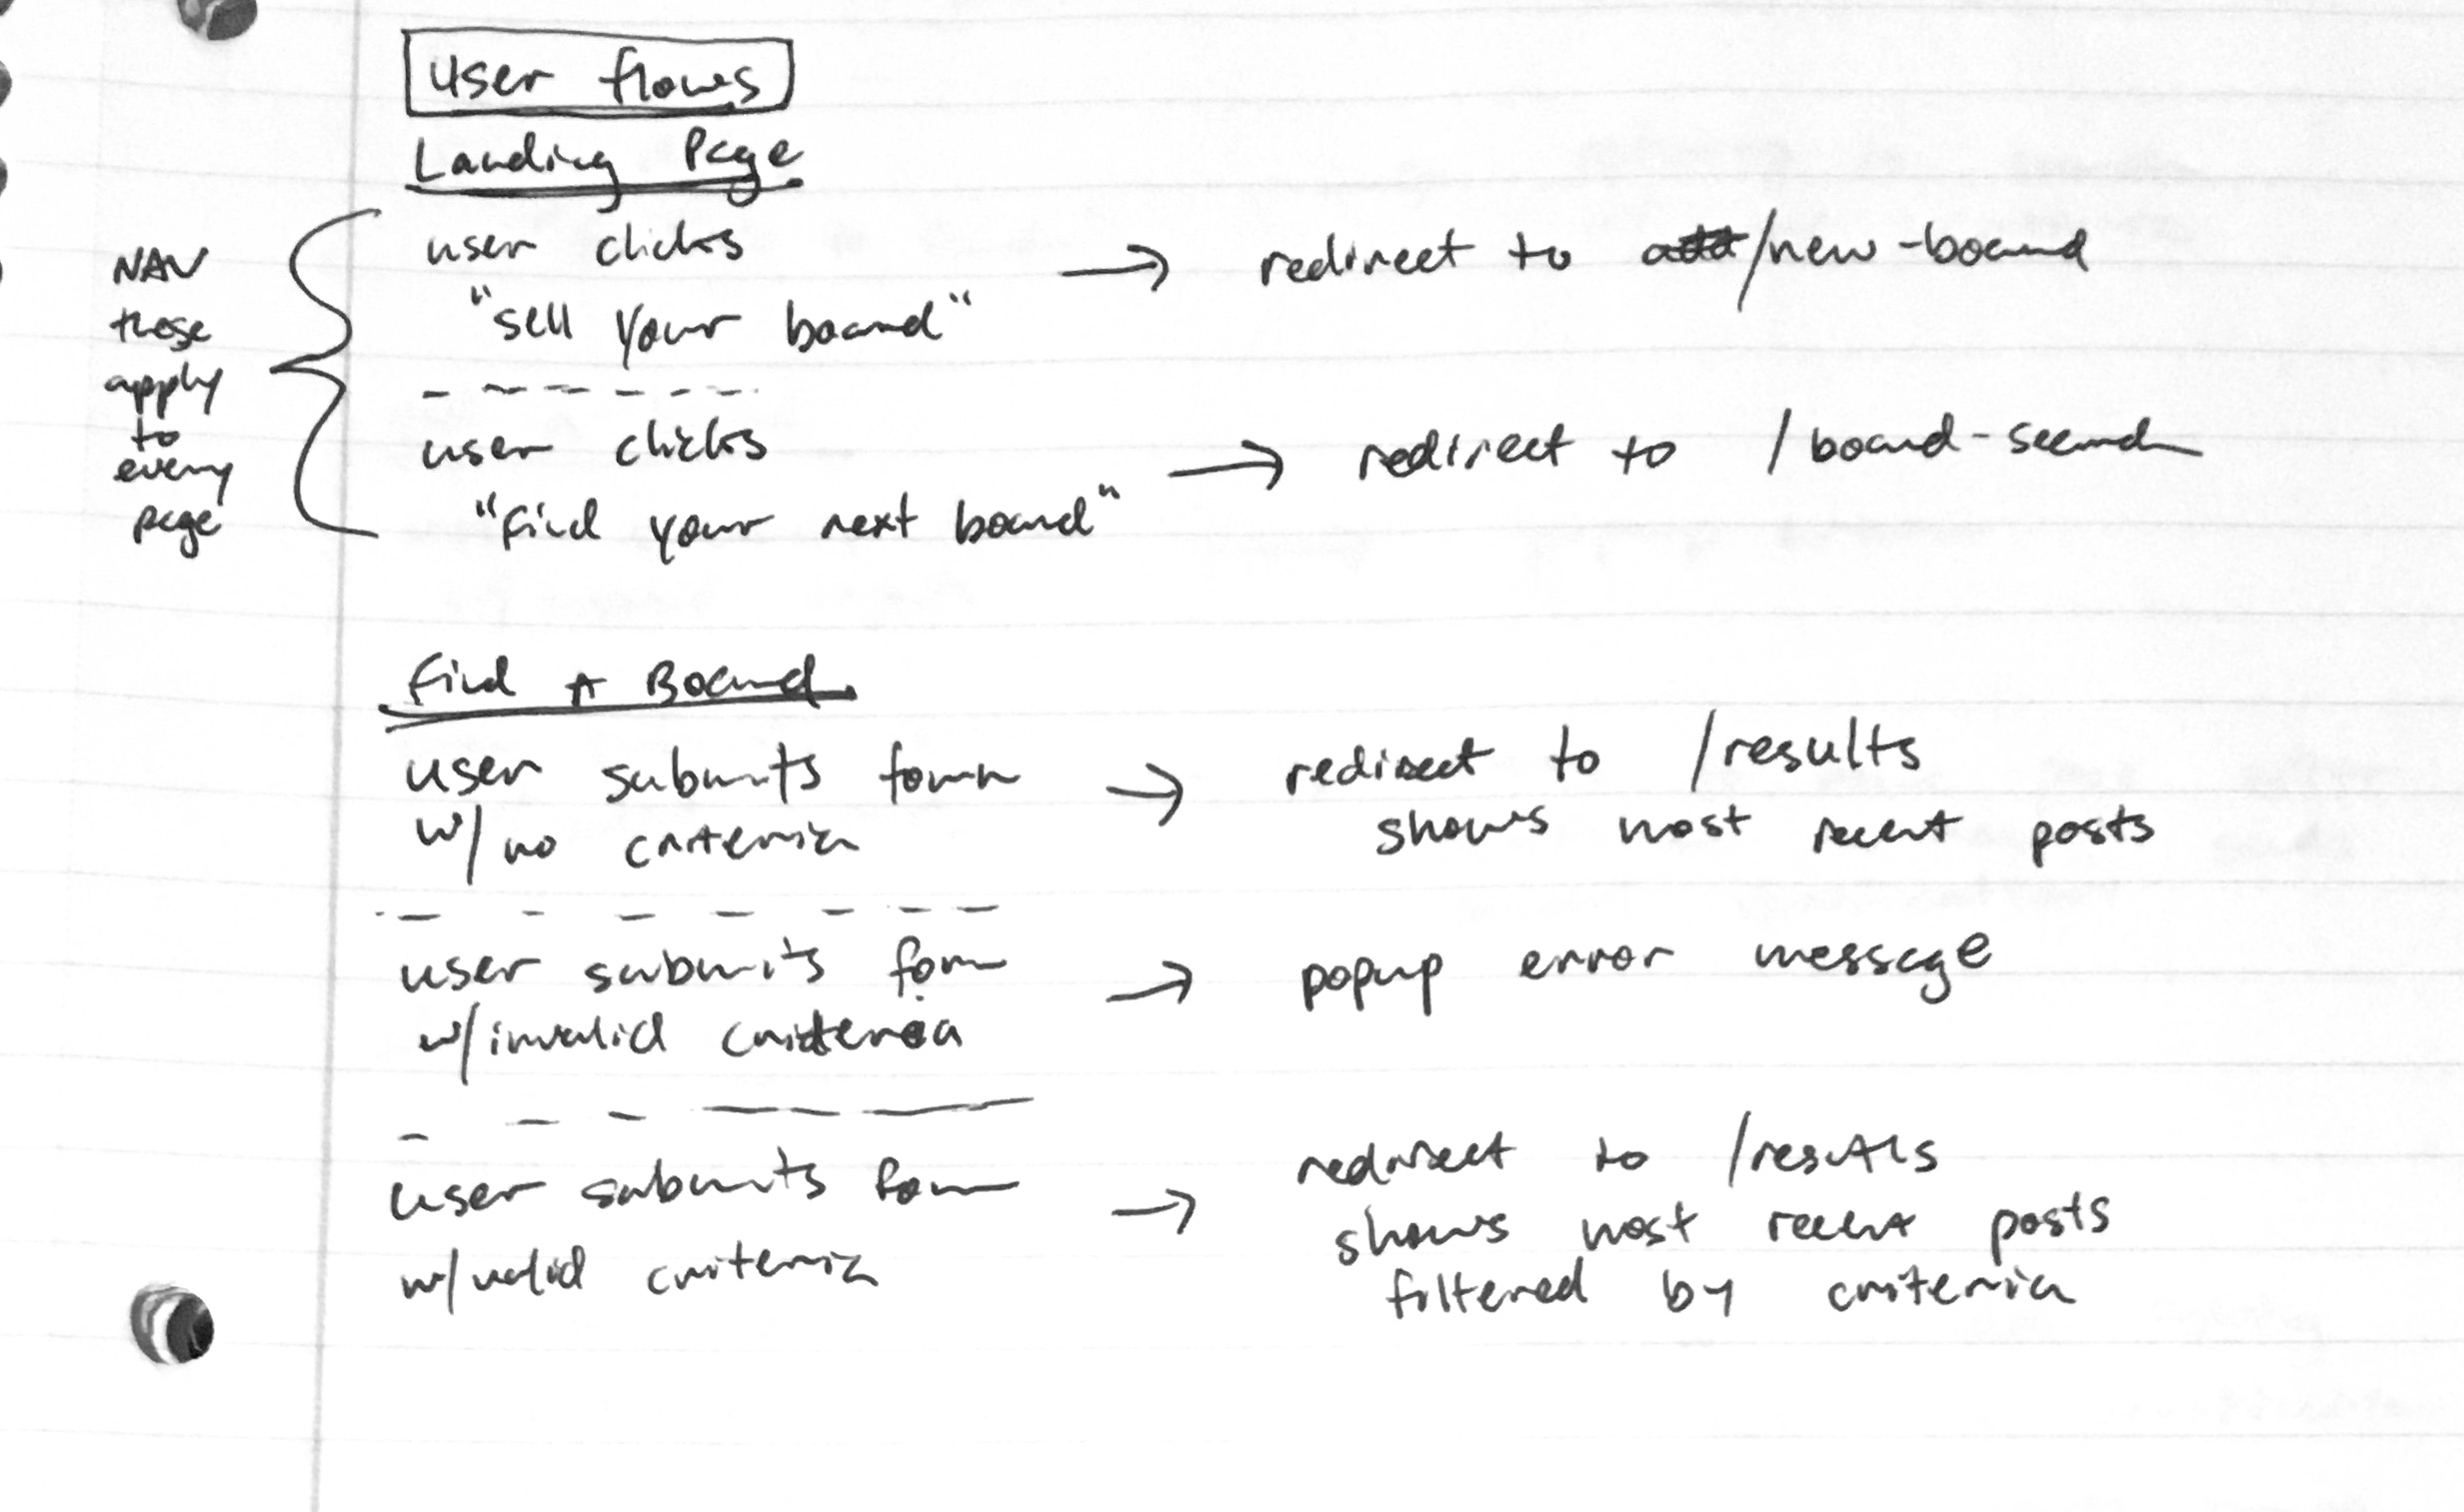 User flows
Landing Page
NAV
these
apply
to
every
page
user clicks
"sell your board"
→ redirect to /new-board
user clicks
"find your next board"
→ redirect to /board-search
Find A Board
user submits form
w/ no criteria
→ redirect to /results
shows most recent posts
user submits form
w/ invalid criteria
→ popup error message
user submits form
w/ valid criteria
→ redirect to /results
shows most recent posts
filtered by criteria